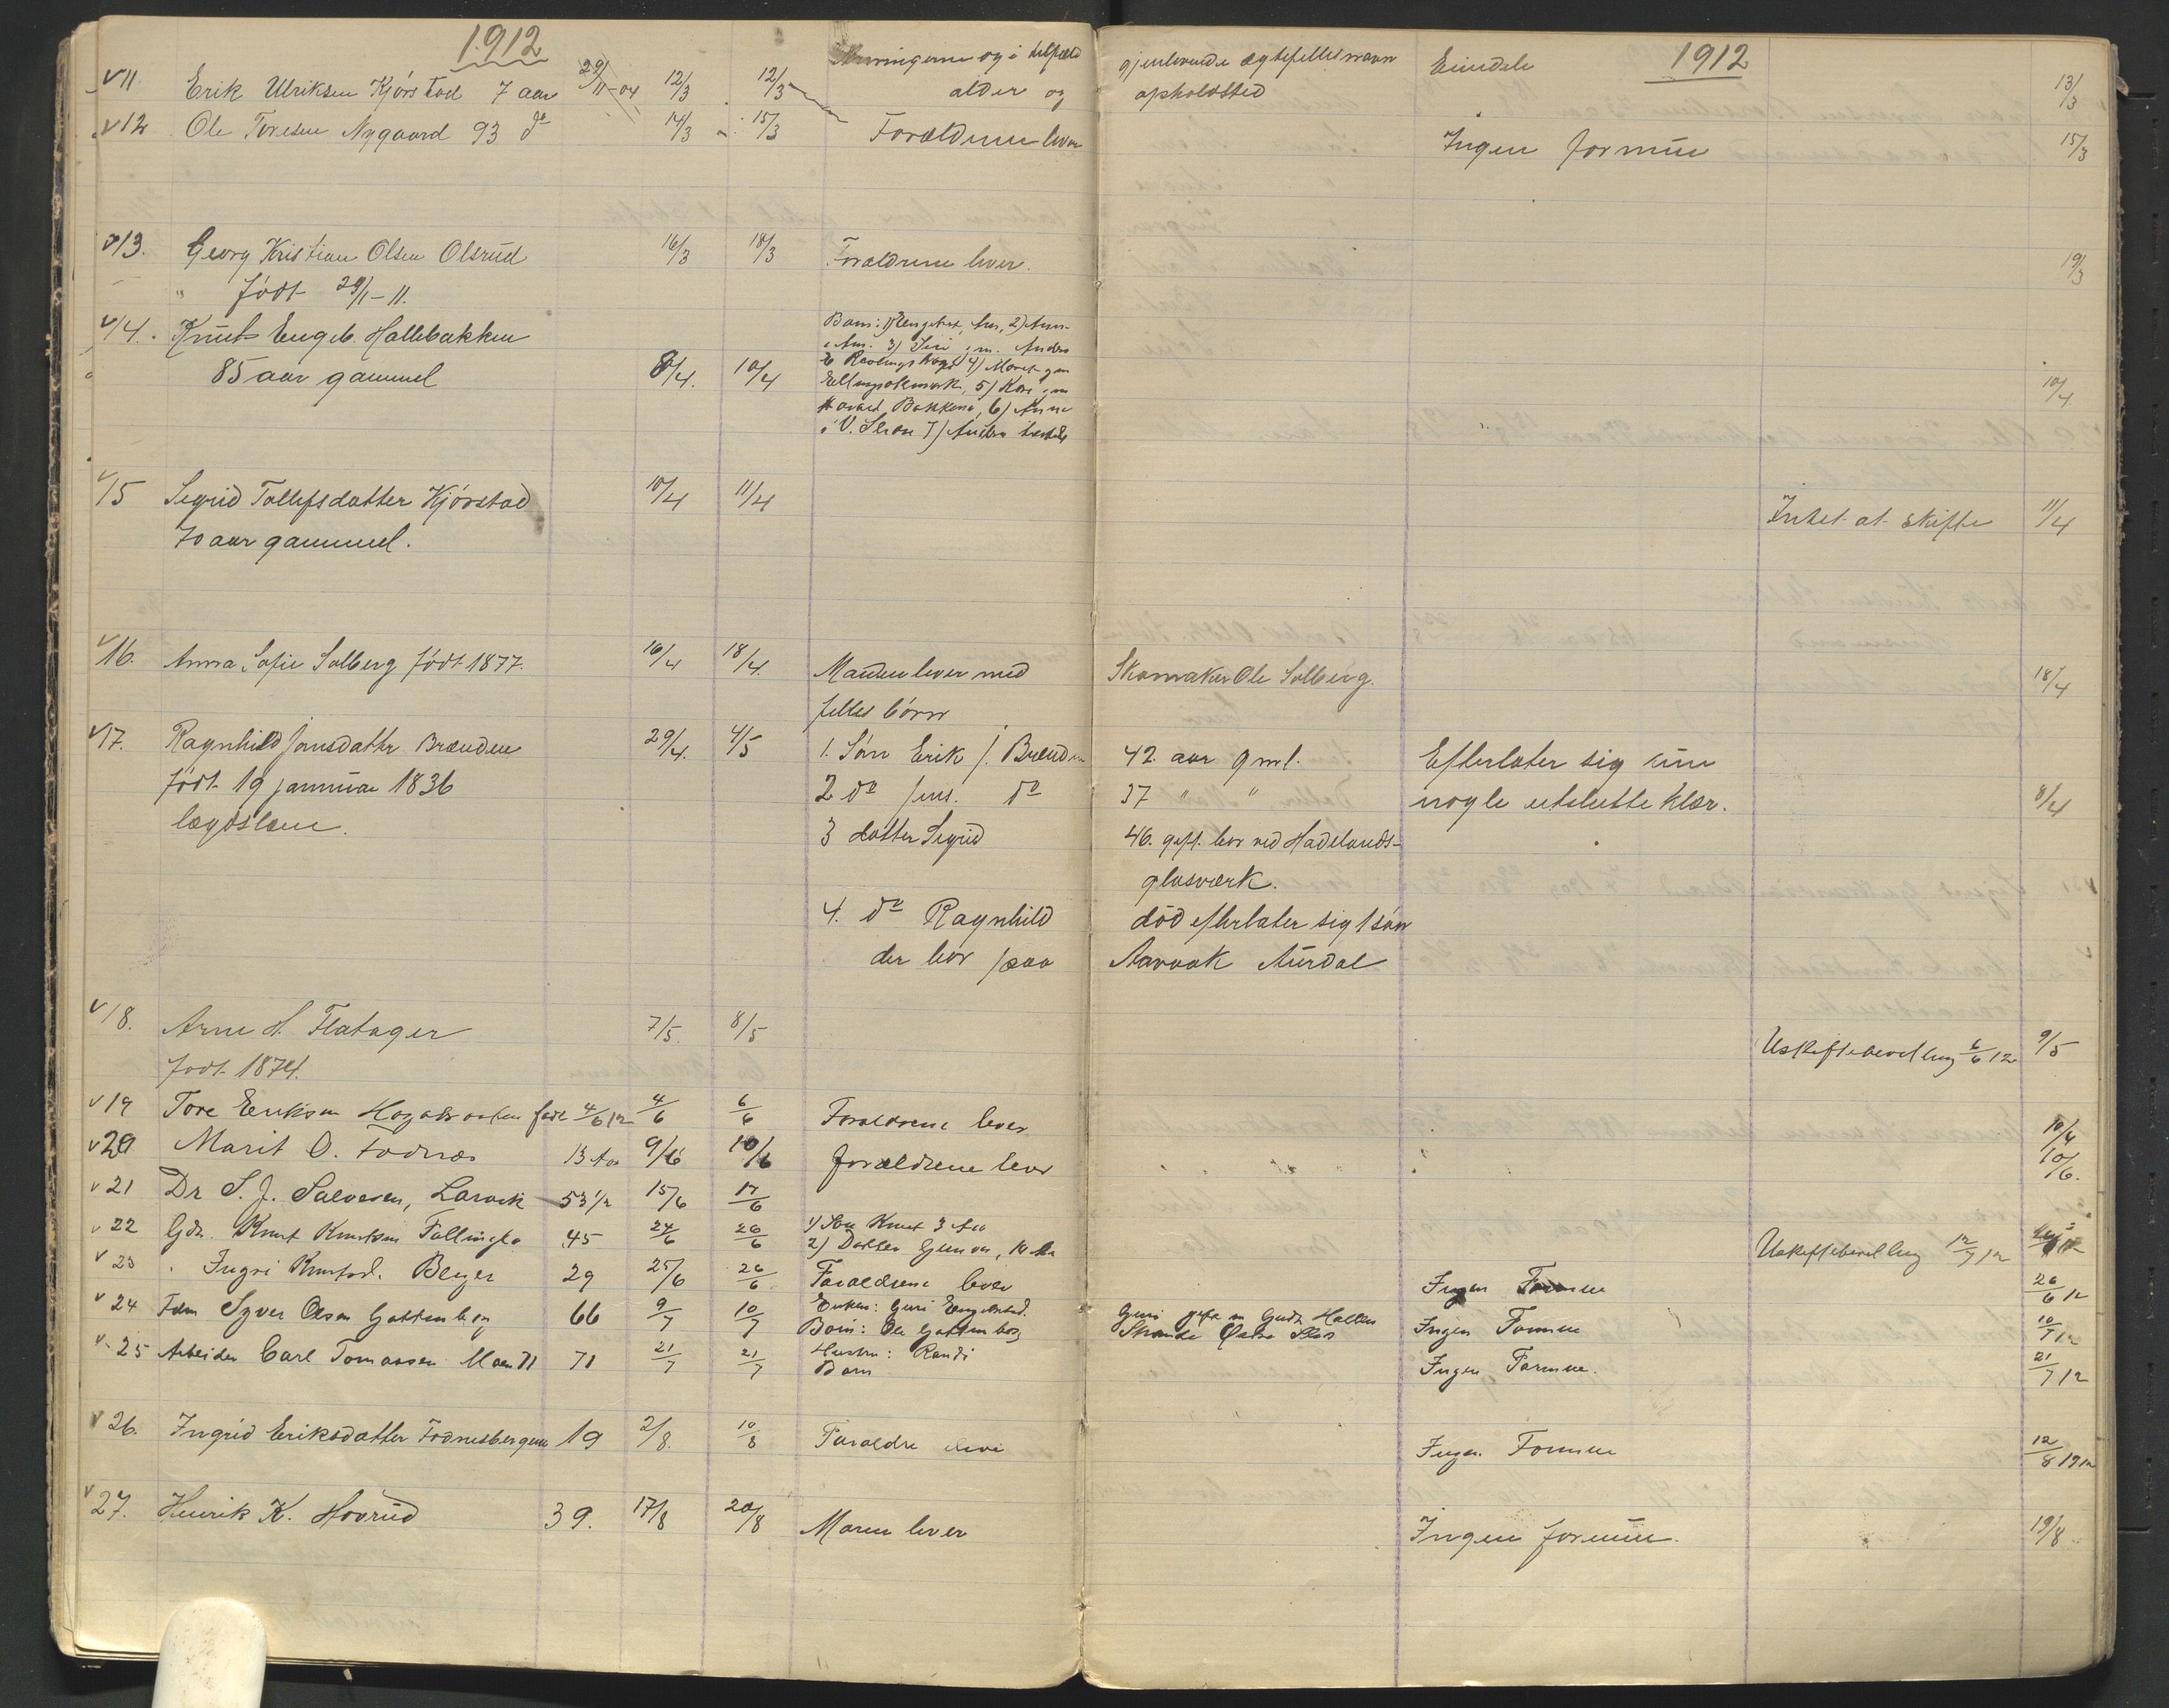 1912
1912
Arvingerne og i tilfælde gjenlevende ægtefelles navn Eiendele
alder og opholdsted
11 Erik Ulriksen Kjørstad 7 aar 29/11-04 12/3 12/3 13/3
12 Ole Toresen Nygaard 93 do 14/3 15/3 Forældrene lever Ingen formue 15/3
13. Georg Kristian Olsen Olsrud 16/3 18/3 Forældrene lever. 19/3
" født 29/1-11.
14. Knut Engeb. Hallebakken
85 aar gammel 8/4. 10/4 10/4
Barn: 1) Engebret, Am., 2) Arne
i Am. 3) Siri gm. Anders
E 4) Marit gm
5) Kari gm
Bakkene, 6) Anne
i V. Slidre 7)
15 Sigrid Tollefsdatter Kjørstad 10/4 11/4 Intet at skifte 11/4
70 aar gammel.
16. Anna Sofie Solberg født 1877. 16/4 18/4. Manden lever med Skomaker Ole Solberg. 18/4
felles børn
17. Ragnhild Jonsdatter Brænden 29/4. 4/5 1. Søn Erik J. Brænden 42 aar gml. Efterlater sig kun
født 19 januuar 1836 2 do Jens. do 37 " " nogle utslitte klær. 8/4
lægdslem. 3 datter Sigrid 46. gift. bor ved Hadelands-
glasværk.
4. do Ragnhild død efterlater sig 1 søn
der bor paa Aavaak Aurdal
18. Arne H. Flatager 7/5. 8/5 Uskiftebevilling 6/6 12 9/5
født 1874.
19 Tore Eriksen født 4/6 12 4/6 6/6 Forældrene lever 10/4
20 Marit O. Fodnæs 13 Aar 9/6 10/6 forældrene lever 10/6.
21 Dr S. J. Salvesen, Larvik 53 1/2 15/6 17/6
22 Gdr. Knut Knutsen Fallingla 45 24/6 26/6 1) Søn Knut 3 Aar Uskiftebevilling 12/7 12
2) Datter Gunvor, 10 Aar
23 Ingri Knutsd. Berger 29 25/6 26/6 Forældrene lever Ingen Formue 26/6 12
24 Fdm Syver Olsen Gottenborg 66 9/7 10/7 Enken: Guri Engebretsd. Guri gift m Gudb. Hallen Ingen Formue 10/7 12
Børn: Ole Gottenborg
25 Arbeider Carl Tomassen Moen 71 21/7 21/7 Hustru: Randi Ingen Formue. 21/7 12
Barn
26. Ingrid Eriksdatter Fodnesbergene 19 2/8. 10/8 Forældre lever Ingen Formue 12/8 1912
27. Henrik K. Hovrud 39. 17/8 20/8 Moren lever Ingen formue. 19/8